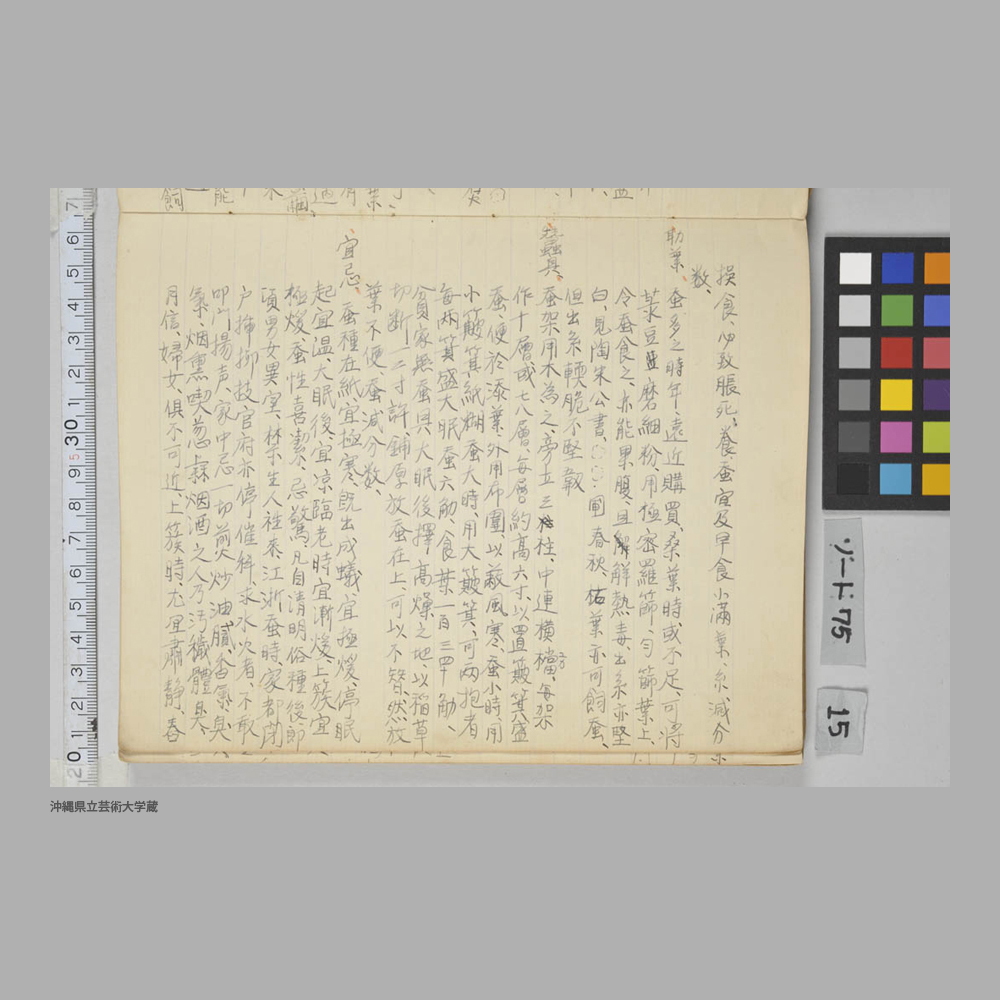 損食、必致脹死。養蚕宜及早食小滿葉、糸、減分
数、
助葉、蚕多之時年、遠近購買、桑葉時或不足、可将
菉豆磨細粉、用極密羅篩、匀篩葉上、
令蚕食之、亦能果腹、且解熱毒、出糸亦堅
白、見陶朱公書、圃春秋、柘葉亦可飼蚕、
但出糸輭脆不堅靱
蠶具、蚕架用木為之、旁立三柱、中連横檔、毎架
作十層或七八層、毎層約高六寸、以置簸箕盛
蚕、便於添葉、外用布圍、以蔽風寒、蚕小時、用
小簸箕紙糊、蚕大時、用大簸箕、可両抱者
毎両箕盛大眠蚕六觔、食葉一百三四觔、
貧家無蚕具、大眠後、擇高燥之地、以稲草
切断一二寸許、鋪厚放蚕在上、可以不替、然放
葉不便、蚕減分数、
宜忌、蚕種在紙、宜極寒、既出成蟻、宜極煖、停眠
起宜温、大眠後、宜凉、臨老時宜漸煖、上簇宜
極煖、蚕性喜潔、忌驚、凡自清明俗種後、即
須男女異室、禁生人往来、江浙蚕時、家都閉
戸、挿柳枝、官府亦停催科、求水火者、不敢
叩門揚声、家中忌一切煎炒油膩、香氣、臭
氣、烟熏、喫葱蒜烟酒之人、乃汚穢體臭、
月信、婦女、俱不可近、上簇時、尤宜肅静、春
ゾード75
15
沖縄県立芸術大学蔵